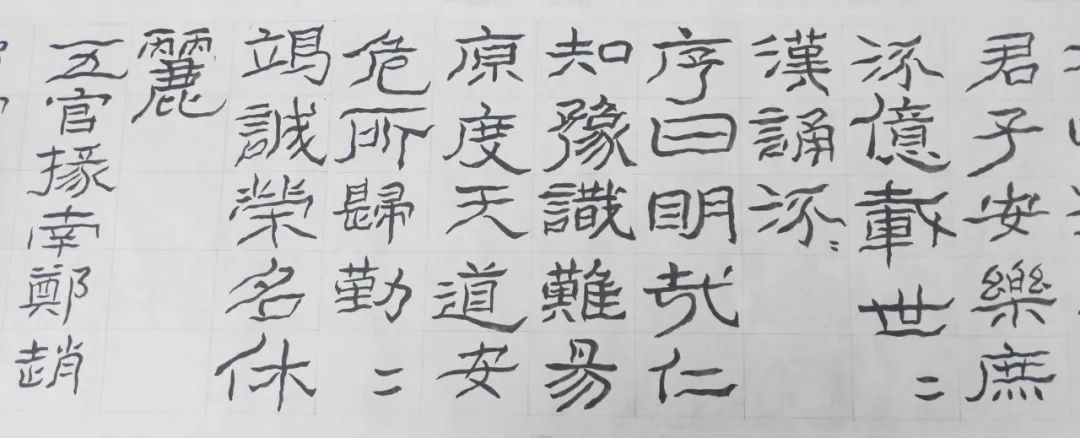 君子安樂庶
流億載世二
漢誦流〻
序曰明哉仁
知豫識難易
原度天道安
危所歸勤二
竭誠榮名休
麗
五官掾南鄭趙